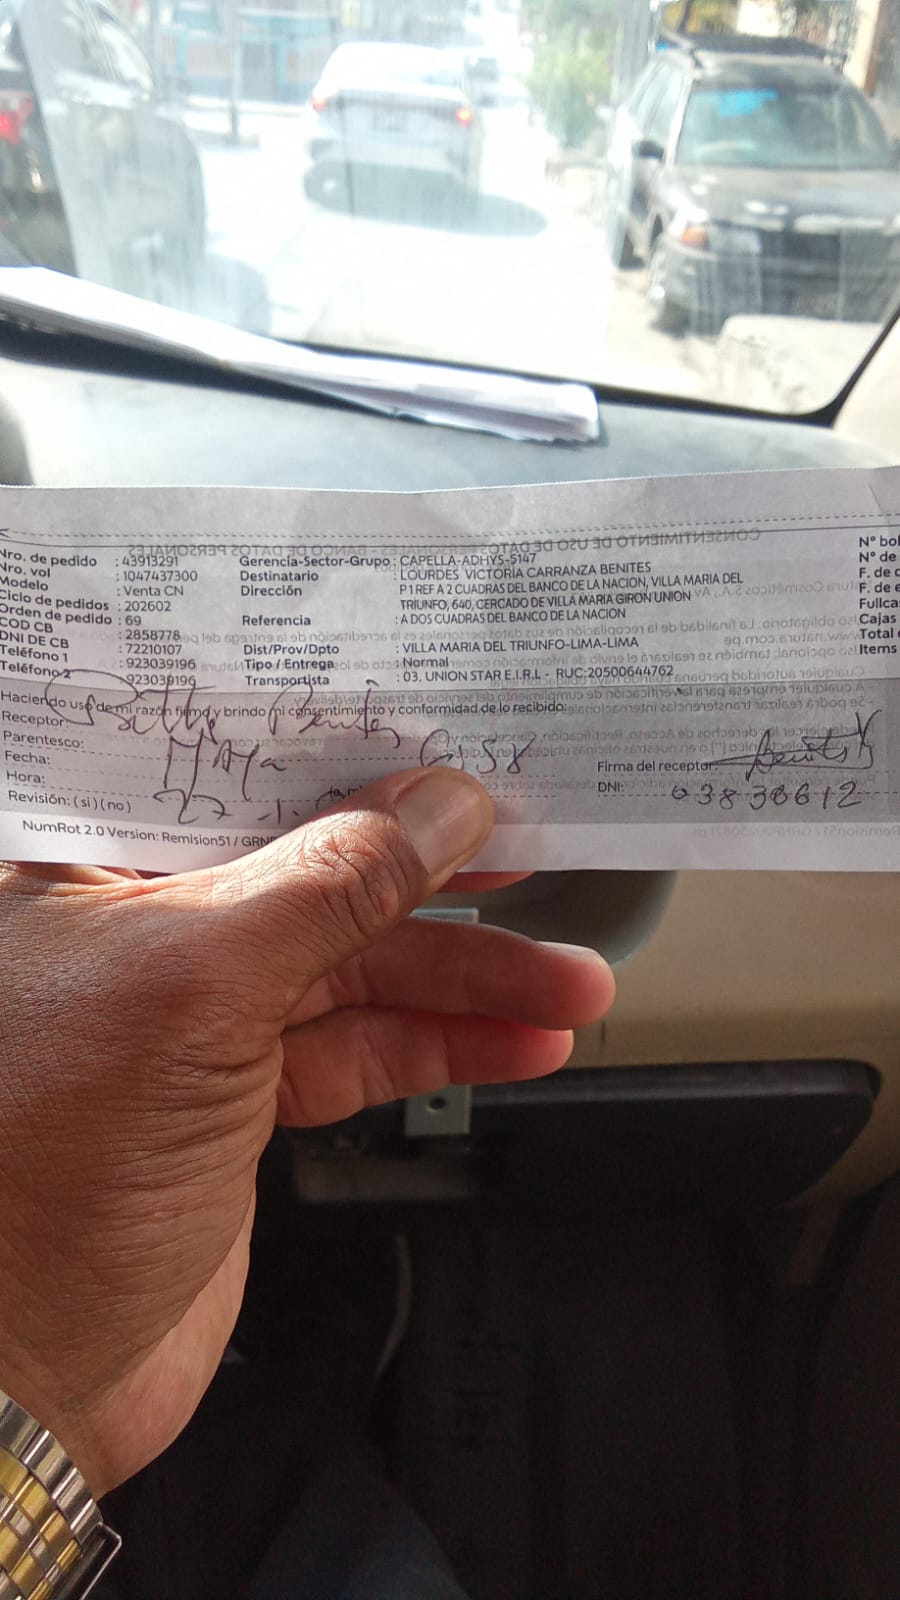 Nro. de pedido : 43913291
Nro. vol : 1047437300
Modelo : Venta CN
Ciclo de pedidos : 202602
Orden de pedido : 69
COD CB : 2858778
DNI DE CB : 72210107
Teléfono 1 : 923039196
Teléfono 2 : 923039196
Gerencia-Sector-Grupo : CAPELLA-ADHYS-5147
Destinatario : LOURDES VICTORIA CARRANZA BENITES
Dirección : P1 REF A 2 CUADRAS DEL BANCO DE LA NACION, VILLA MARIA DEL
TRIUNFO, 640, CERCADO DE VILLA MARIA GIRON UNION
Referencia : A DOS CUADRAS DEL BANCO DE LA NACION
Dist/Prov/Dpto : VILLA MARIA DEL TRIUNFO-LIMA-LIMA
Tipo / Entrega : Normal
Transportista : 03. UNION STAR E.I.R.L - RUC:20500644762
N° bol
N° de
F. de
F. de e
Fullca
Cajas
Total
Items
Haciendo uso de mi razón firmo y brindo mi consentimiento y conformidad de lo recibido:
Receptor:
Parentesco:
Fecha:
Hora:
Revisión: ( si ) ( no )
58
Firma del receptor:
DNI: 03838612
NumRot 2.0 Version: Remision51 / GRN